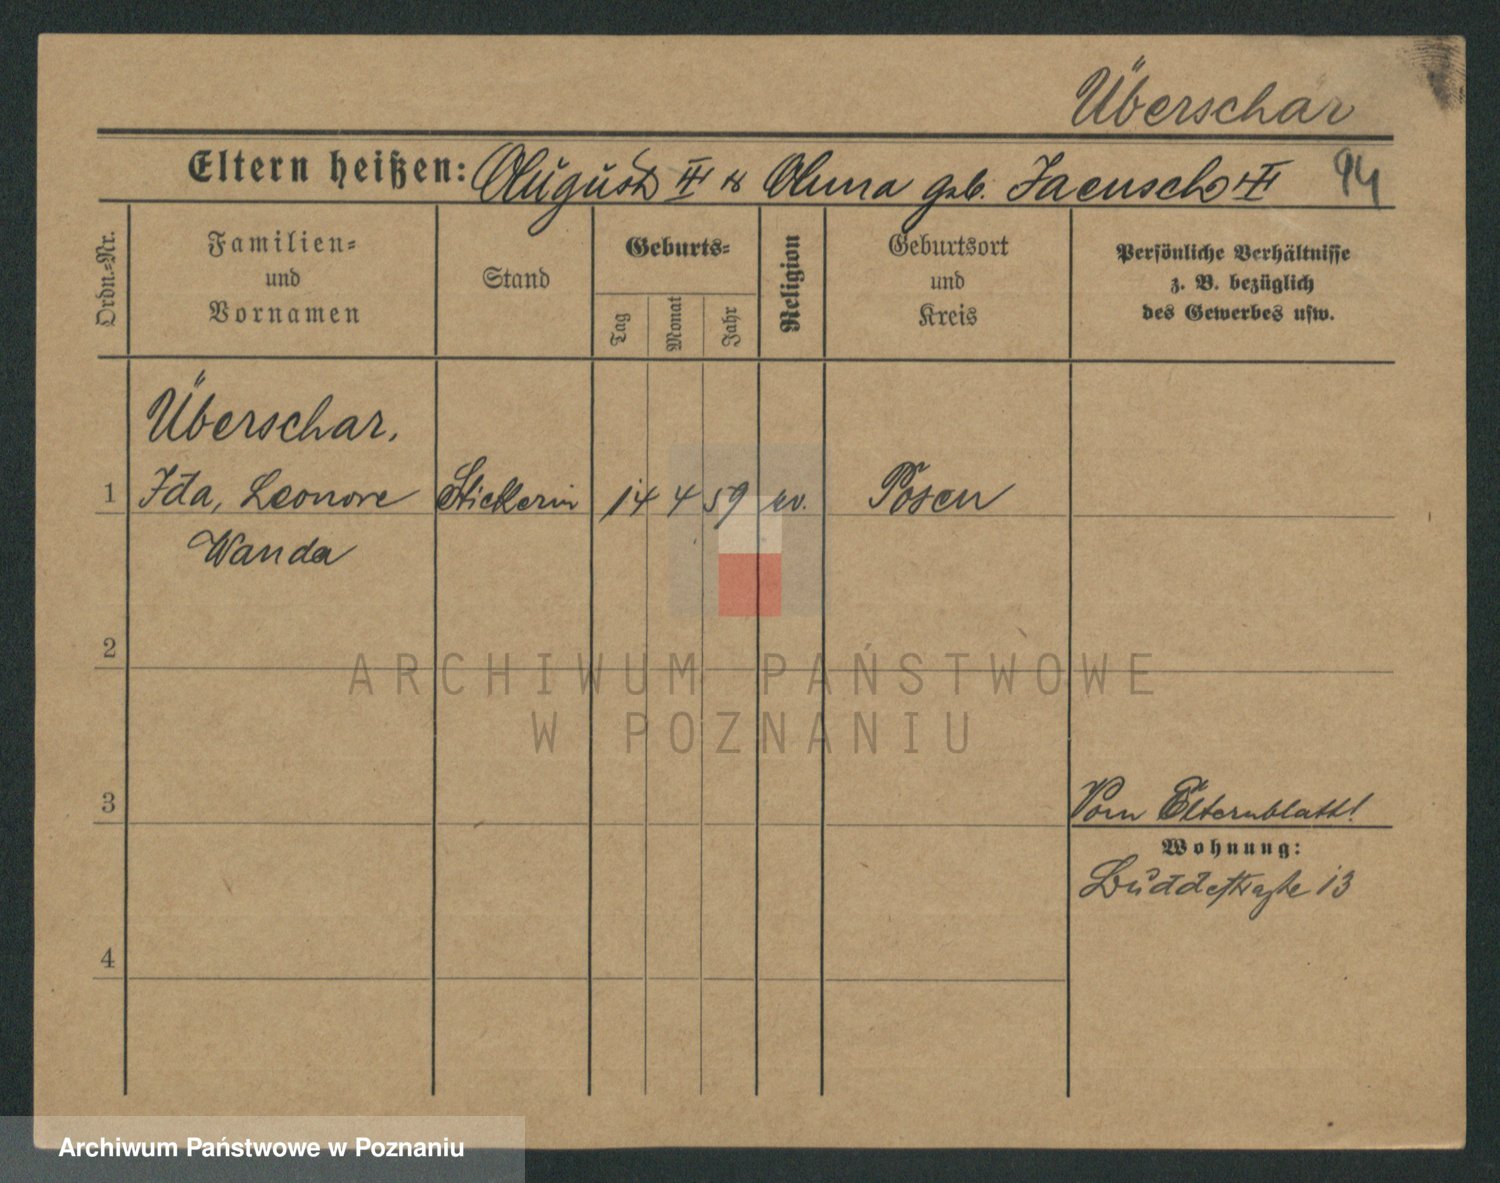 Überschar
Eltern heißen: August u. Anna geb. Jaensch 94
Ordn.-Nr.
Familien-
und
Vornamen
Stand
Geburts-
Tag
Monat
Jahr
Religion
Geburtsort
und
Kreis
Persönliche Verhältnisse
z. B. bezüglich
des Gewerbes usw.
Überschar,
1 Ida, Leonore Stickerin 14 4 59 ev. Posen
Wanda
2
ARCHIWUM PAŃSTWOWE
W POZNANIU
3
Vom Elternblatt!
Wohnung:
Buddestraße 13
4
Archiwum Państwowe w Poznaniu